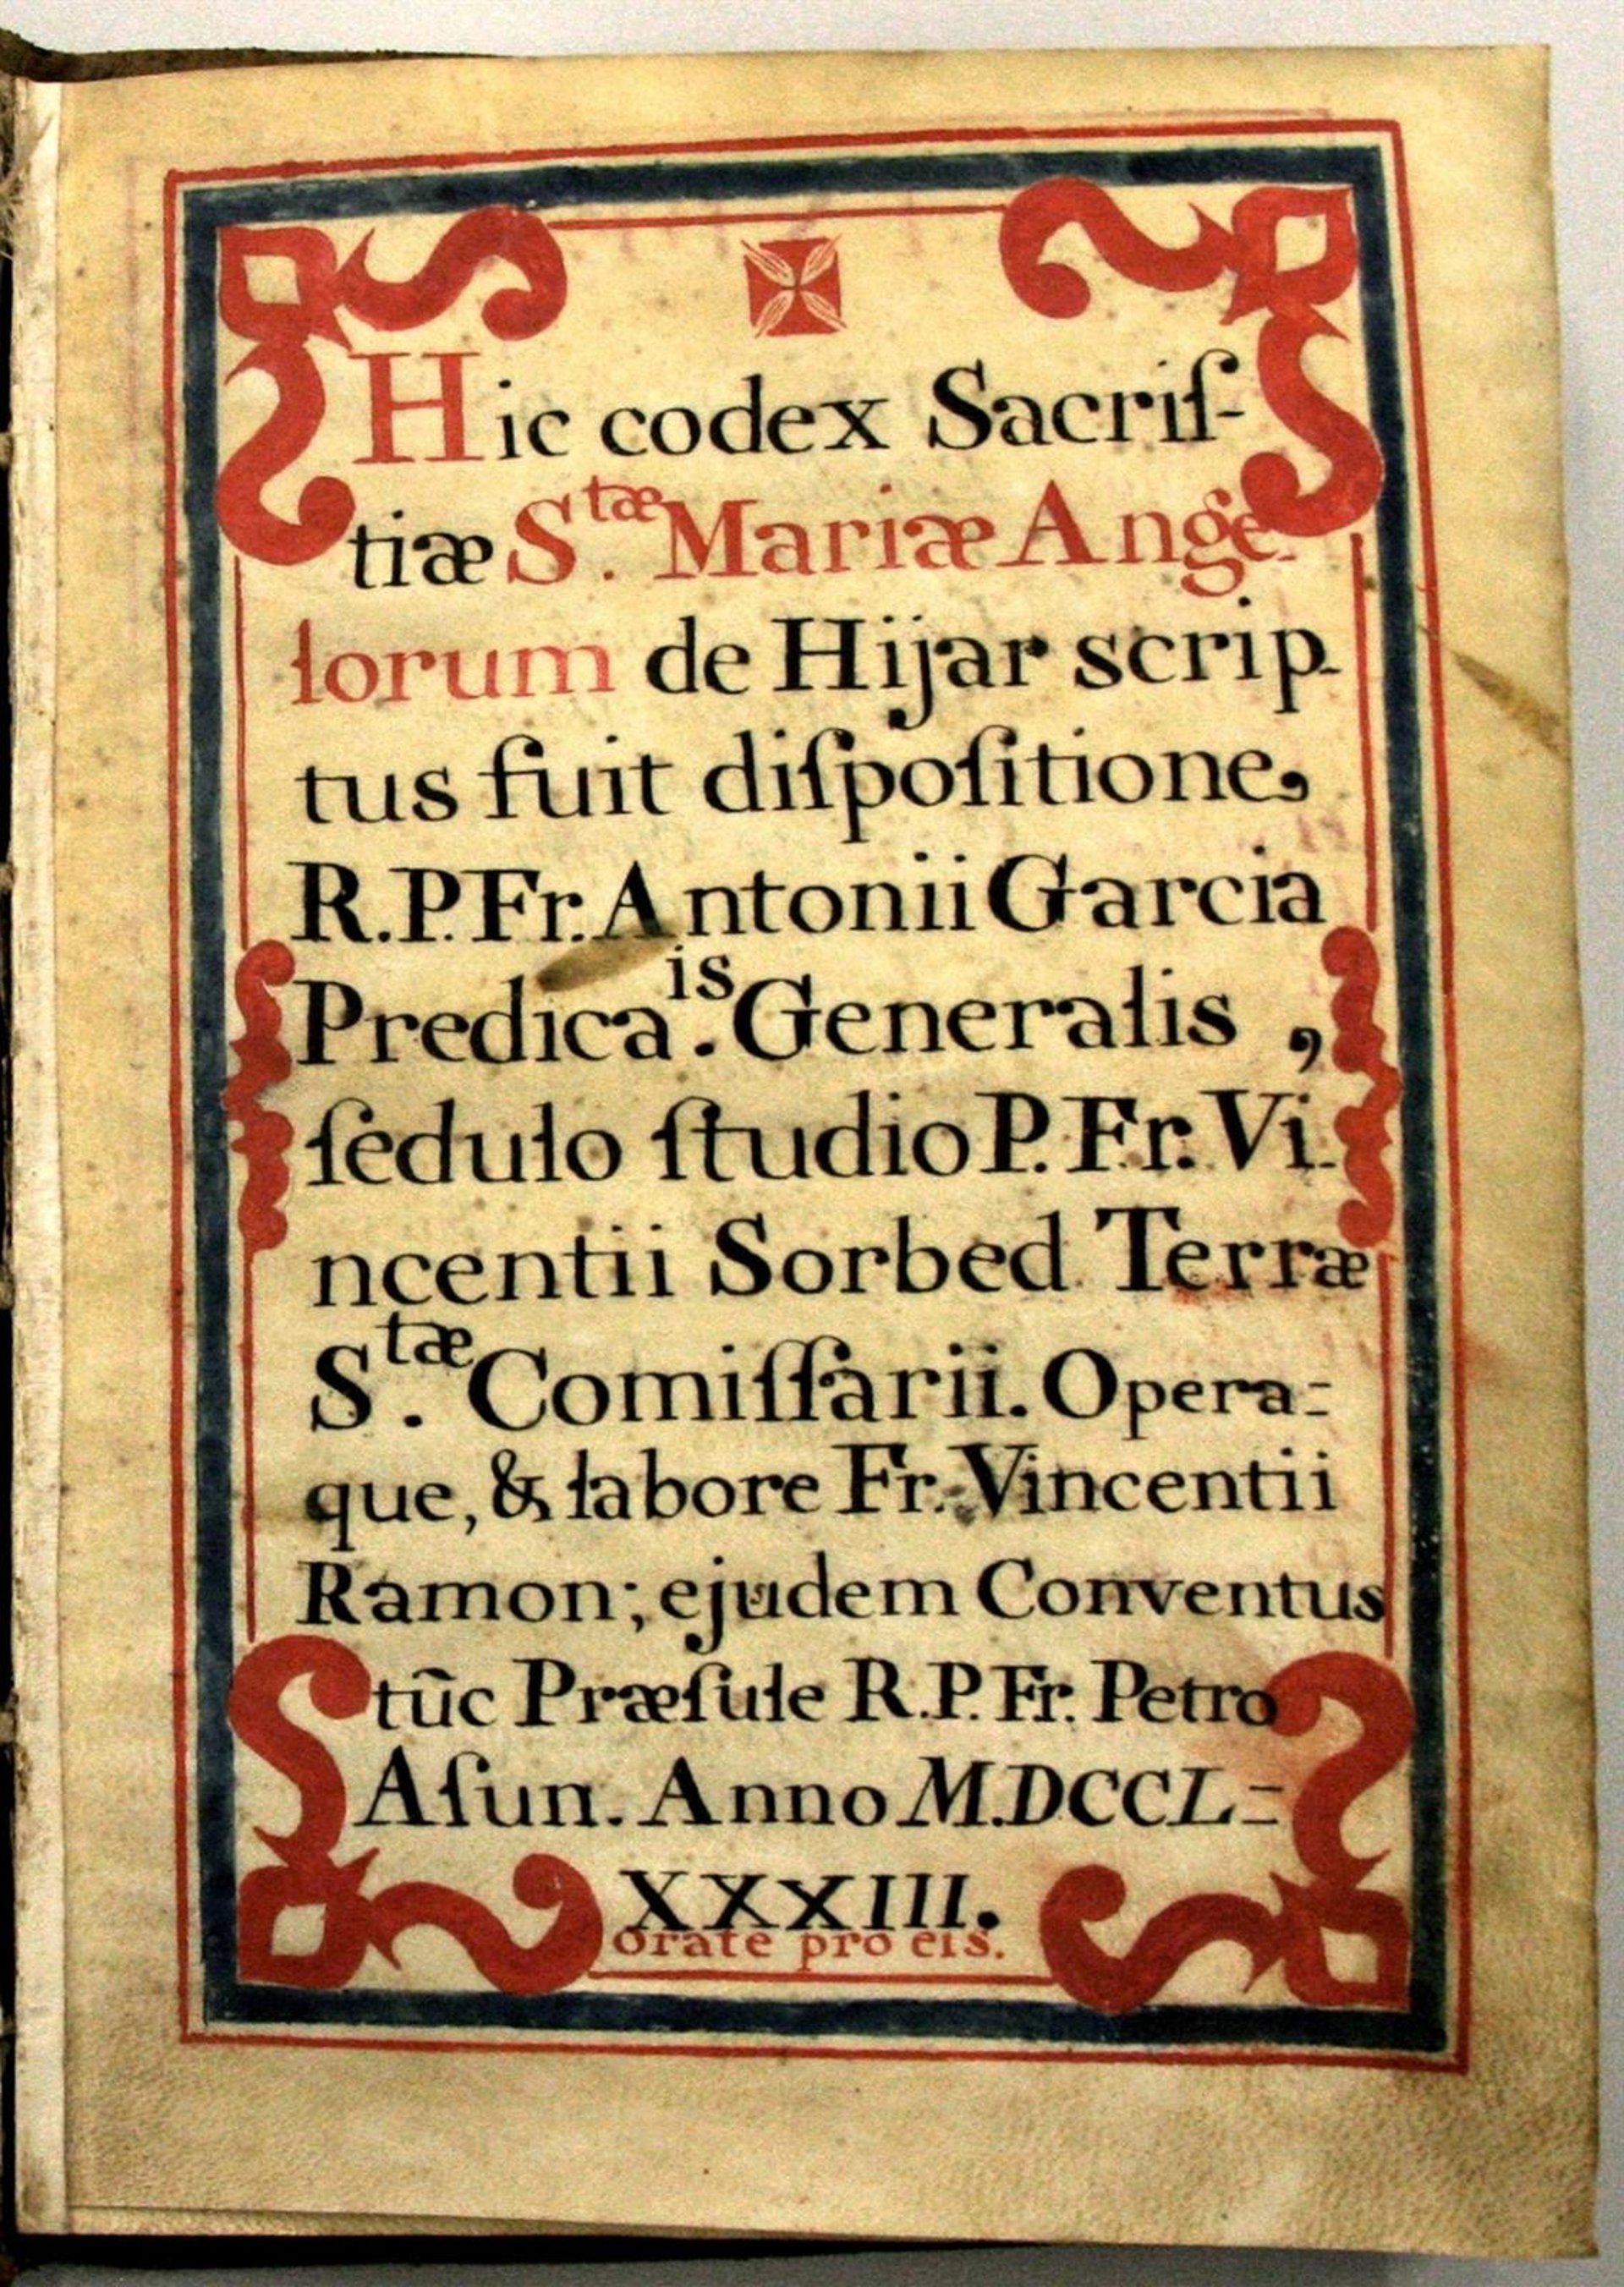 Hic codex Sacriſ-
tiæ S.tæ Mariæ Ange-
lorum de Hijar scrip-
tus fuit diſpoſitione,
R.P.Fr. Antonii Garcia
Predica.is Generalis ,
ſedulo ſtudio P. Fr. Vi-
ncentii Sorbed Terræ
S.tæ Comiſſarii. Opera=
que, & labore Fr. Vincentii
Ramon; ejudem Conventus
tūc Præſule R.P. Fr. Petro
Aſun. Anno M.DCCL=
XXXIII.
orate pro eis.